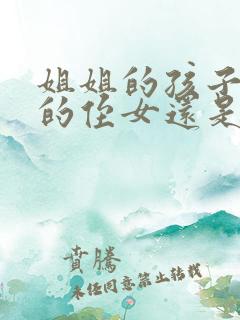 姐姐的孩子
的侄女還是
賁騰
未任同意禁止转载